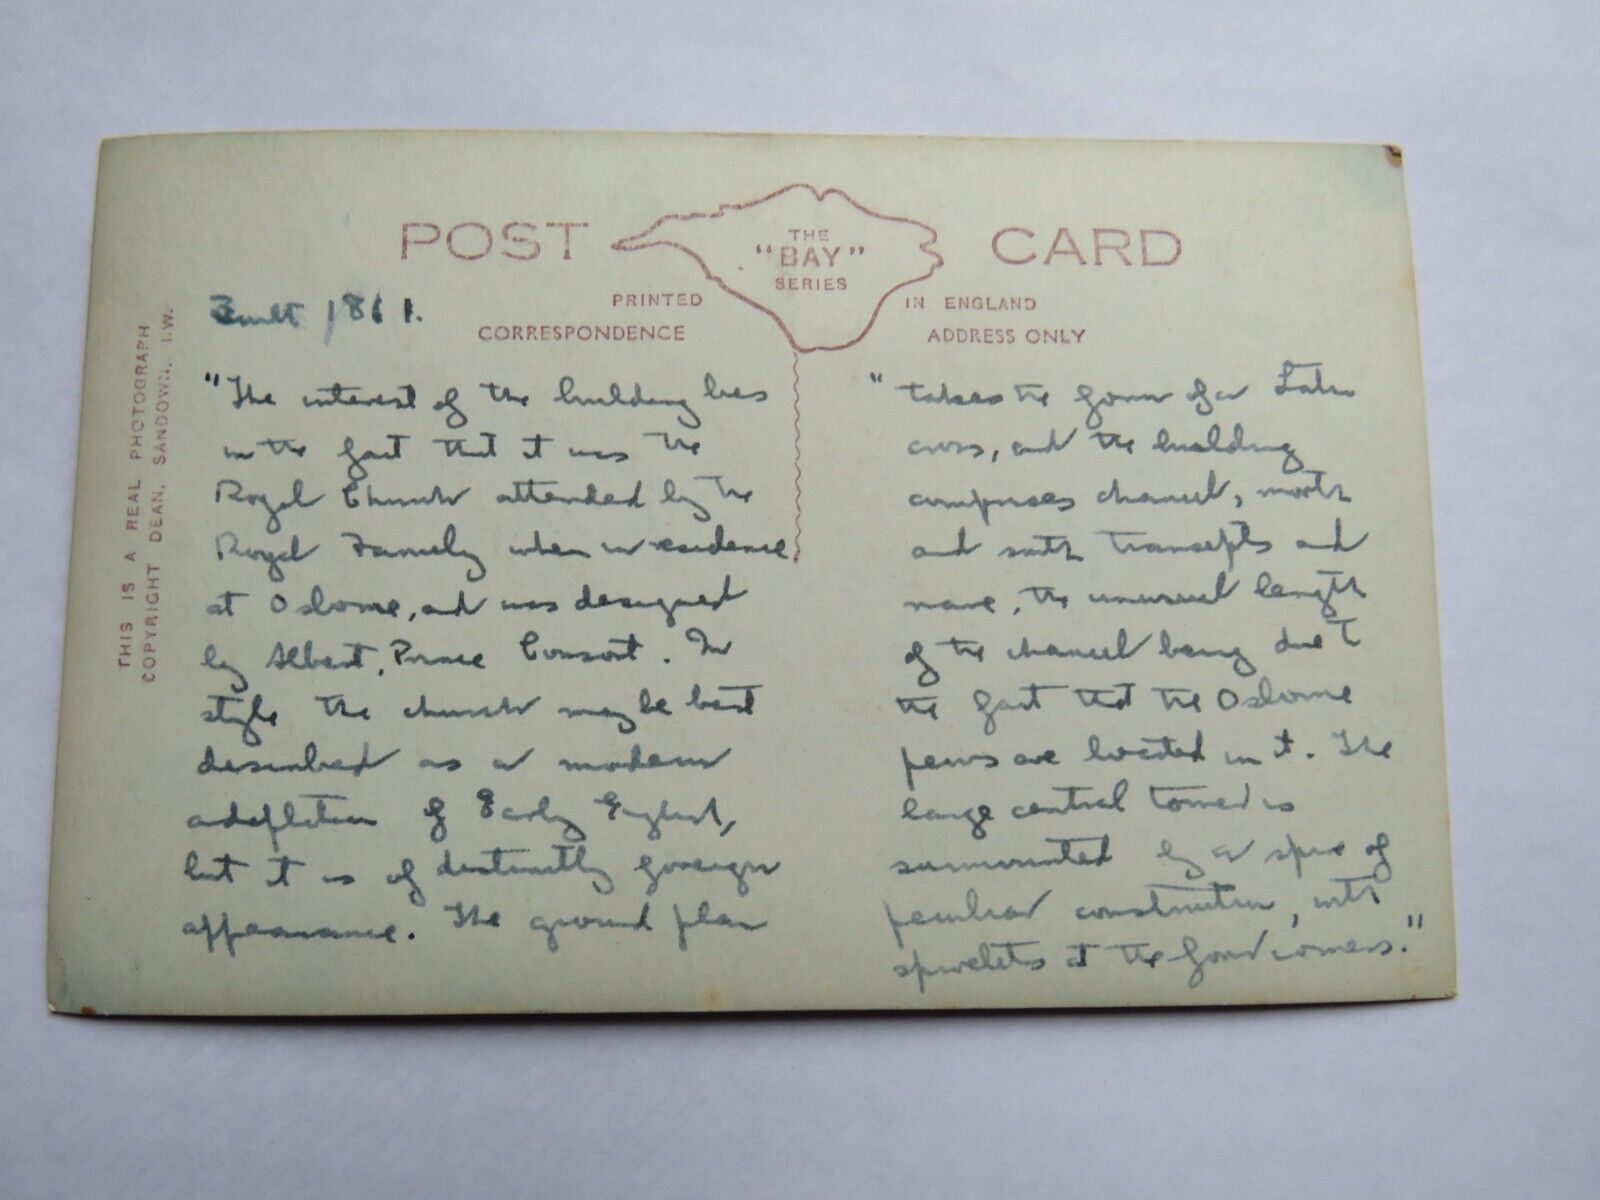 POST CARD
THE
"BAY"
SERIES
PRINTED IN ENGLAND
CORRESPONDENCE ADDRESS ONLY
THIS IS A REAL PHOTOGRAPH
COPYRIGHT DEAN, SANDOWN, I.W.
Built 1861.
"The interest of the building lies
in the fact that it was the
Royal Church attended by the
Royal Family when in residence
at Osborne, and was designed
by Albert, Prince Consort. In
style the church may be best
described as a modern
adaptation of Early English,
but it is of distinctly foreign
appearance. The ground plan
"takes the form of a Latin
cross, and the building
comprises chancel, north
and south transepts and
nave, the unusual length
of the chancel being due to
the fact that the Osborne
pews are located in it. The
large central tower is
surmounted by a spire of
peculiar construction, with
spirelets at the four corners."